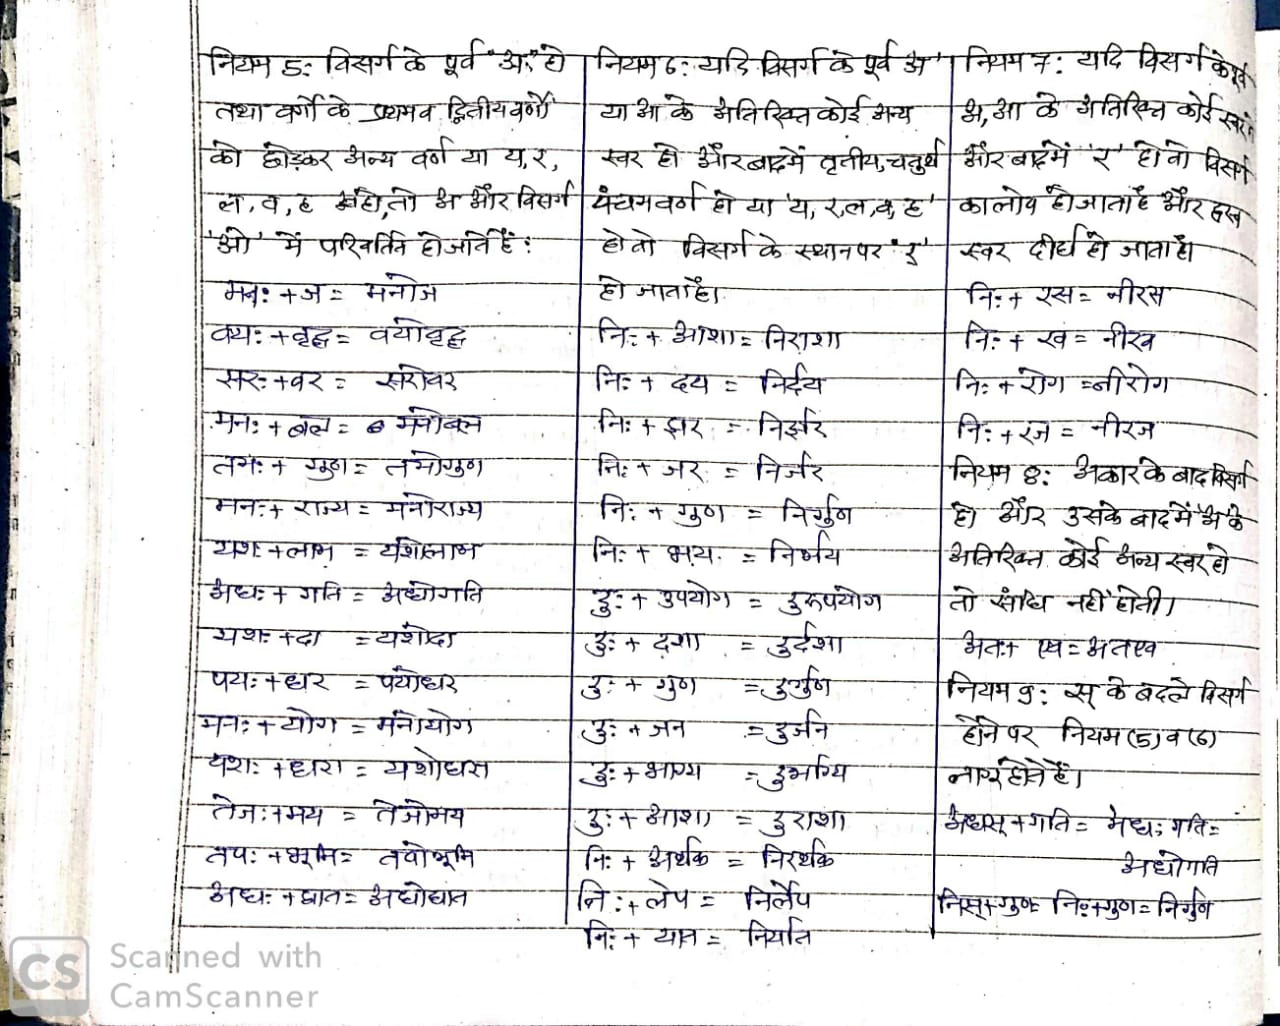 नियम 5: विसर्ग के पूर्व 'अ' हो
तथा वर्गो के प्रथम व द्वितीय वर्णों
को छोड़कर अन्य वर्ण या य, र,
ल, व, ह हो, तो अ और विसर्ग
'ओ' में परिवर्तित हो जाते हैं :
मन: + ज = मनोज
वय: + वृद्ध = वयोवृद्ध
सर: + वर = सरोवर
मन: + बल = मनोबल
तम: + गुण = तमोगुण
मन: + राज्य = मनोराज्य
यश: + लाभ = यशोलाभ
अध: + गति = अधोगति
यश: + दा = यशोदा
पय: + धर = पयोधर
मन: + योग = मनोयोग
यश: + धरा = यशोधरा
तेज: + मय = तेजोमय
तप: + भूमि = तपोभूमि
अध: + घात = अधोघात
नियम 6: यदि विसर्ग के पूर्व अ'
या आ के अतिरिक्त कोई अन्य
स्वर हो और बाद में तृतीय, चतुर्थ
पंचम वर्ण हो या 'य, र, ल, व, ह'
हो तो विसर्ग के स्थान पर 'र्'
हो जाता है।
नि: + आशा = निराशा
नि: + दय = निर्दय
नि: + झर = निर्झर
नि: + जर = निर्जर
नि: + गुण = निर्गुण
नि: + भय = निर्भय
दु: + उपयोग = दुरूपयोग
दु: + दशा = दुर्दशा
दु: + गुण = दुर्गुण
दु: + जन = दुर्जन
दु: + भाग्य = दुर्भाग्य
दु: + आशा = दुराशा
नि: + अर्थक = निरर्थक
नि: + लेप = निर्लेप
नि: + यात = निर्यात
नियम 7: यदि विसर्ग के पूर्व
अ, आ के अतिरिक्त कोई स्वर
और बाद में 'र' हो तो विसर्ग
का लोप हो जाता है और ह्रस्व
स्वर दीर्घ हो जाता है।
नि: + रस = नीरस
नि: + रव = नीरव
नि: + रोग = नीरोग
नि: + रज = नीरज
नियम 8: अकार के बाद विसर्ग
हो और उसके बाद में 'अ' के
अतिरिक्त कोई अन्य स्वर हो
तो संधि नहीं होती।
अत: + एव = अतएव
नियम 9: स् के बदले विसर्ग
होने पर नियम (5) व (6)
लागू होते हैं।
अधस् + गति = अध: गति =
अधोगति
निस् + गुण = नि: + गुण = निर्गुण
CS Scanned with
CamScanner